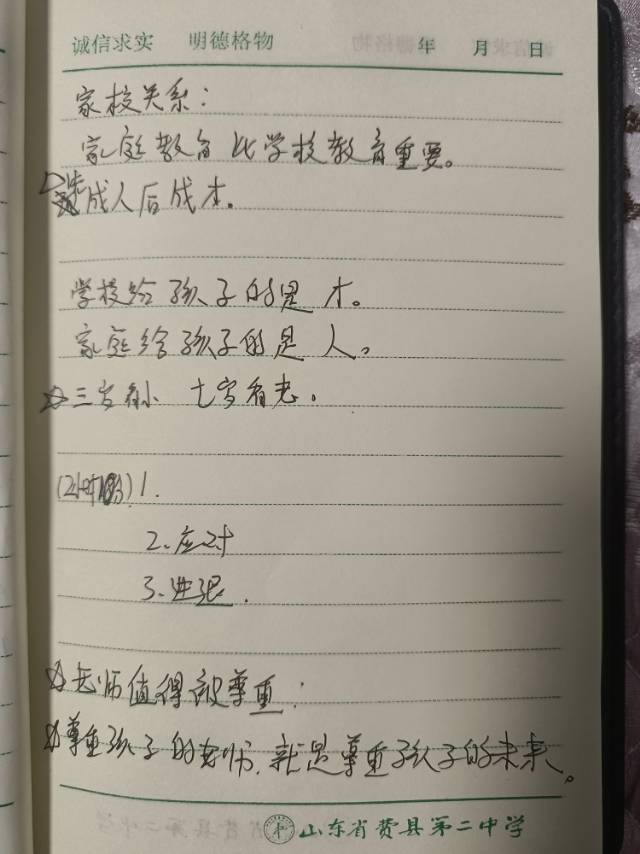 诚信求实 明德格物 年 月 日
家校关系：
家庭教育比学校教育重要。
先成人后成才。
学校给孩子的是才。
家庭给孩子的是人。
☆三岁看小 七岁看老。
1.
2、应对
3、进退.
☆老师值得被尊重；
☆尊重孩子的老师，就是尊重孩子的未来。
山东省费县第二中学